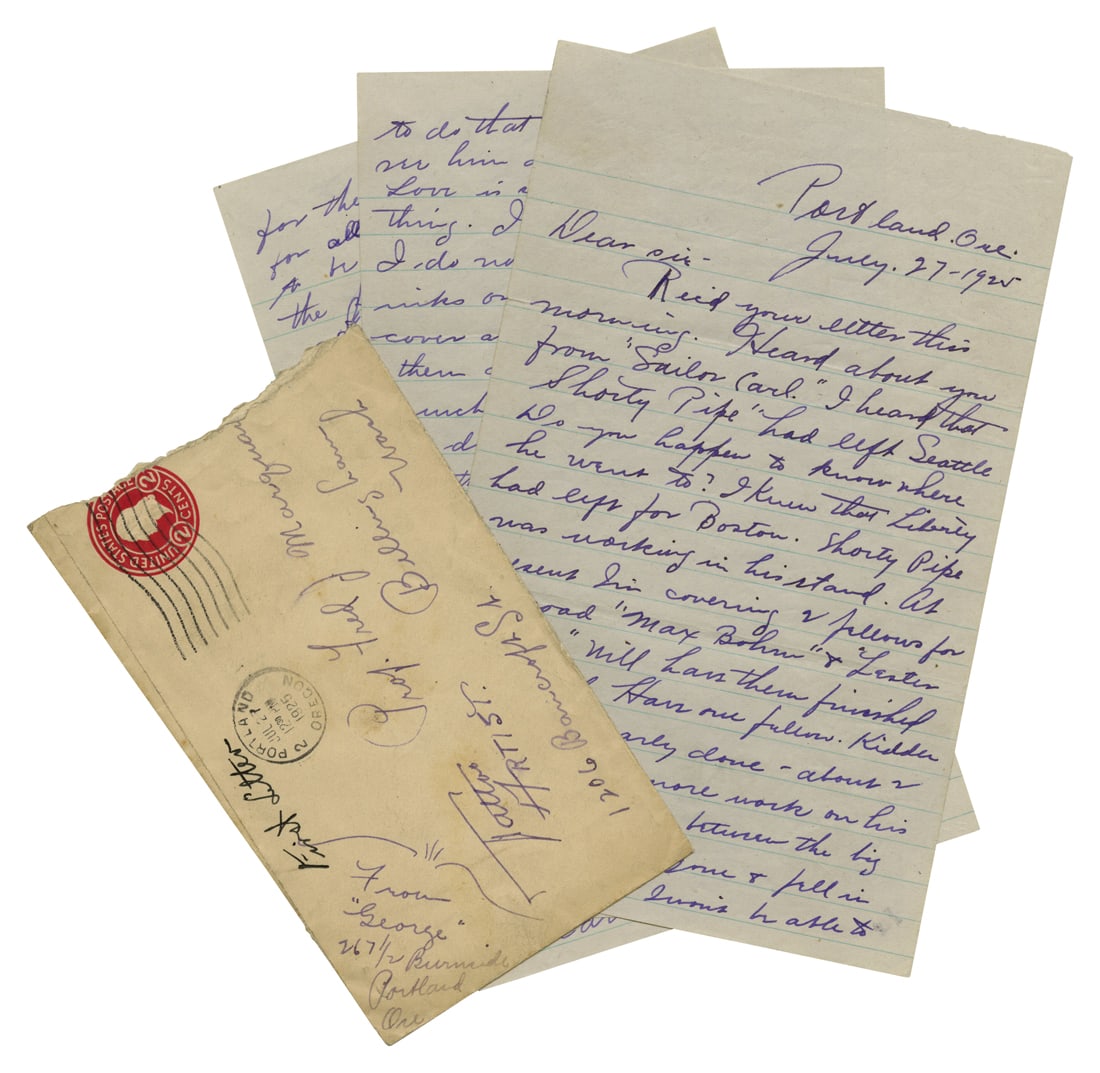 Portland. Ore.
July. 27-1925
Dear sir-
Rec'd your letter this
morning. Heard about you
from "Sailor Carl." I heard that
Shorty Pipe" had left Seattle
Do you happen to know where
he went to? I knew that Liberty
had left for Boston. Shorty Pipe
was working in his stand. At
esent I'm covering 2 fellows for
oad "Max Bohm" & "Lester
" Will have them finished
Have one fellow. Kidder
arly done - about 2
more work on his
between the big
& fill in
I won't be able to
to do that
see him
Love is
thing. I
I do no
inks or
cover a
them
unch
for the
for all
the
UNITED STATES POSTAGE
2 CENTS 2
PORTLAND
JUL 27
12 30 PM
1925
OREGON
2
First Letter
Prof. Fred J Marquand
Bellingham
Wash
Tattoo
ARTIST.
1206 Bancroft St
From
"George"
267 1/2 Burnside
Portland
Ore